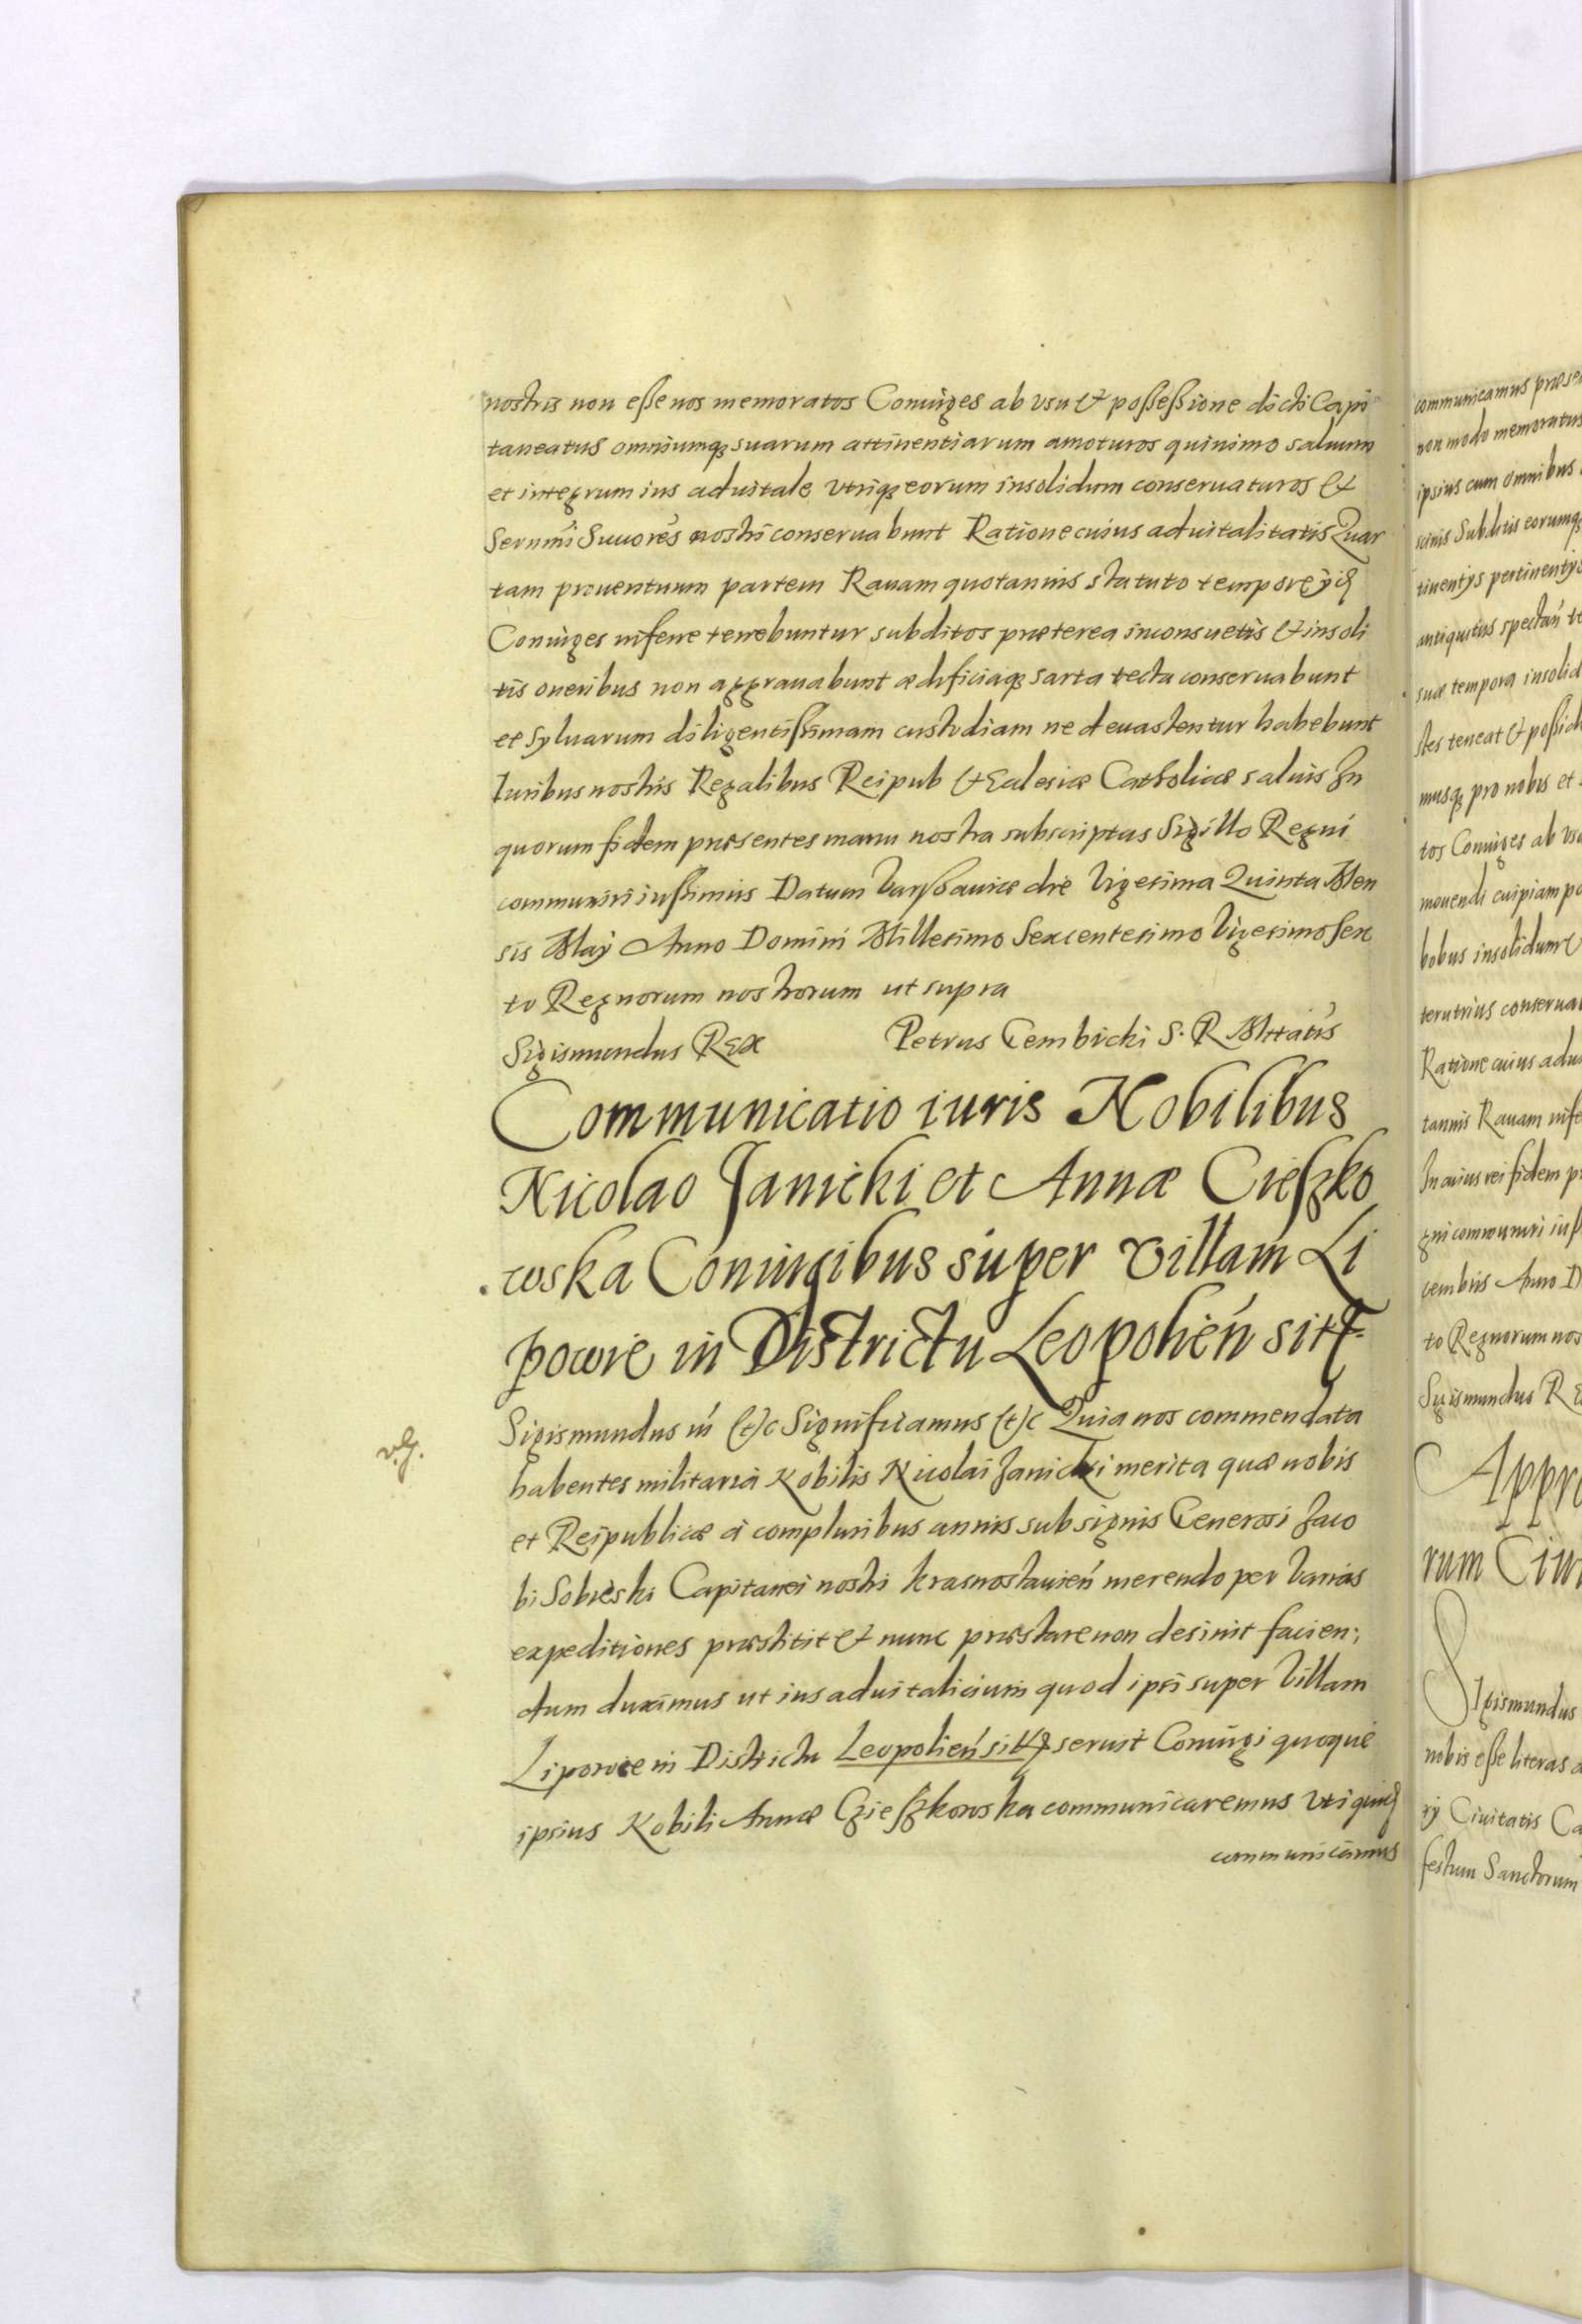 nostris non esse nos memoratos Coniuges ab vsu & possessione dicti Capi
taneatus omniumq; suarum attinentiarum amoturos quinimo saluum
et integrum ius aduitale vtriq; eorum insolidum conseruaturos &
Serenmi Suuores nostri conseruabunt Ratione cuius aduitalitatis Quar
tam prouentuum partem Rauam quotannis statuto tempore ijdē
Coniuges inferre tenebuntur subditos præterea inconsuetis & insoli
tis oneribus non aggrauabunt ædificiaq; sarta tecta conseruabunt
et syluarum diligentissimam custodiam ne deuastentur habebunt
Iuribus nostris Regalibus Reipub & Eclesiæ Catholicæ saluis In
quorum fidem præsentes manu nostra subscriptas Sigillo Regni
communiri iussimus Datum Varssouiæ die Vigesima Quinta Men
sis Maij Anno Domini Millesimo Sexcentesimo Vigesimo Sex
to Regnorum nostrorum ut supra
Sigismundus REX Petrus Gembicki S. R. Mttatis
Communicatio iuris Nobilibus
Nicolao Janicki et Annæ Cieszko
wska Coniugibus super Villam Li
powie in Districtu Leopolień sitā
Sigismundus iii &c Significamus &c Quia nos commendata
habentes militaria Nobilis Nicolai Janicki merita quæ nobis
et Reipublicæ à compluribus annis sub signis Generosi Jaco
bi Sobieski Capitanei nostri Krasnostauień merendo per Varias
expeditiones præstitit & nunc præstare non desinit facien:
dum duximus ut ius aduitalicium quod ipsi super Villam
Lipowce in Districtu Leopolień sitā seruit Coniugi quoque
ipsius Nobili Annæ Czieszkowska communicaremus vti quidē
communicamus
communicamus præse
non modo memoratus
ipsius cum omnibus
scinis Subditis eorumq;
tinentijs pertinentijs
antiquitus spectań te
suæ tempora insolid
stes teneat & possid
musq; pro nobis et
tos Coniuges ab vsu
mouendi cuipiam po
bobus insolidum &
terutrius conserua
Ratione cuius adui
tannis Rauam infe
In cuius rei fidem p
gni communiri iuss
cembris Anno D
to Regnorum nos
Sigismundus RE
Appro
rum Ciui
Sigismundus
nobis esse literas a
rij Ciuitatis Ca
festum Sanctorum